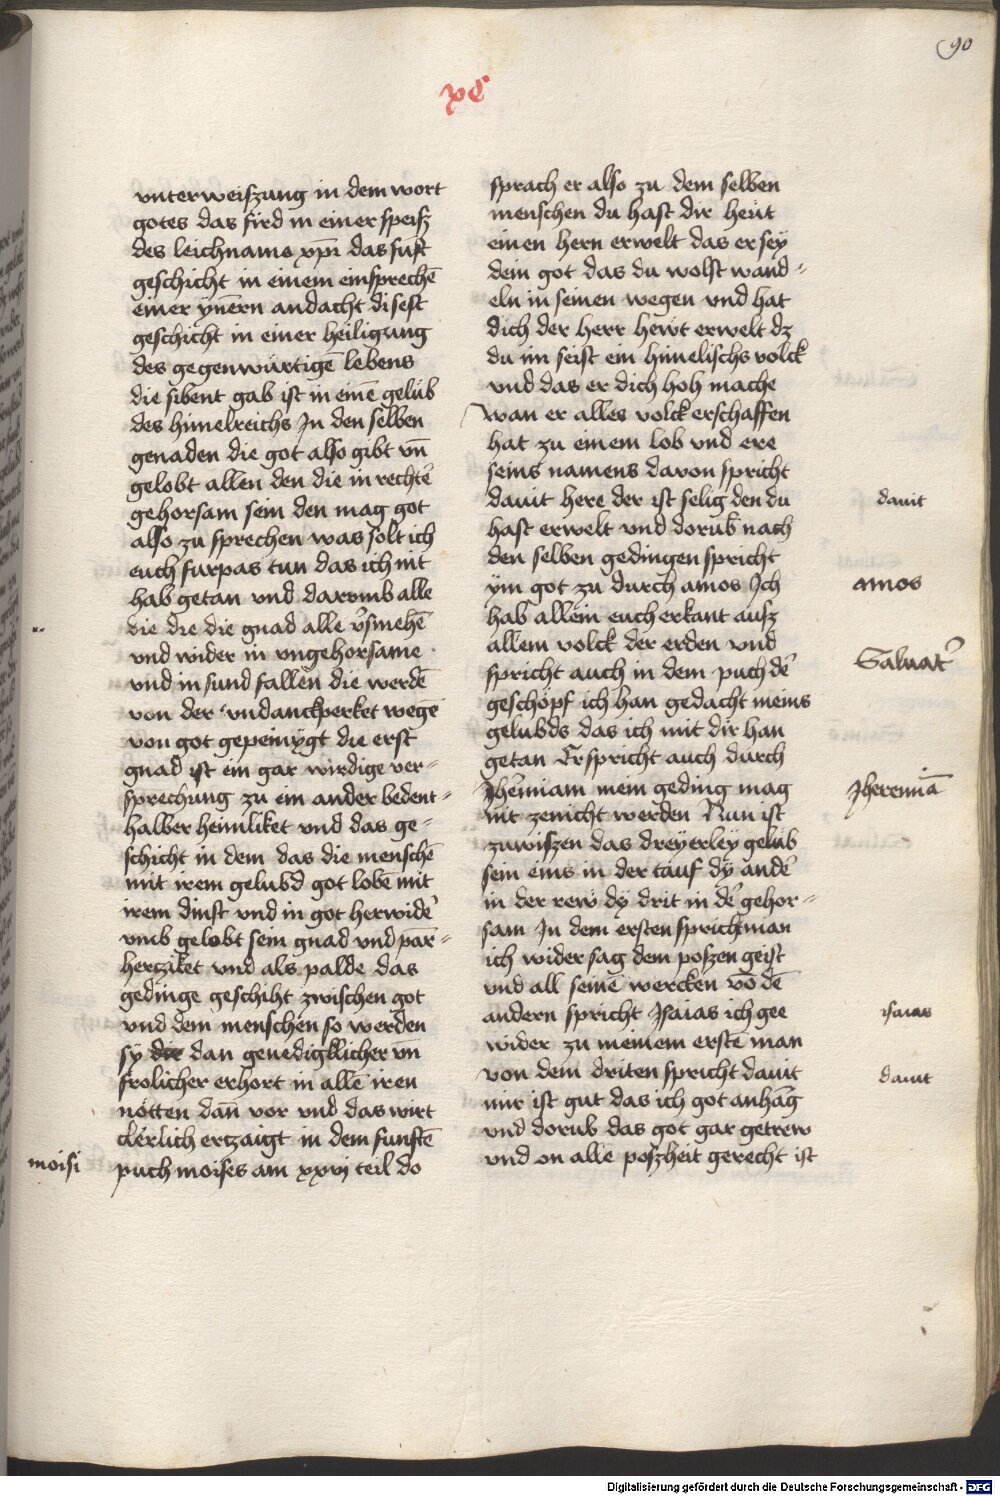 90
xc
vnterweiszung in dem wort
gotes das fird in einer speisz
des leichnams xp̄i das fuft
geschicht in einem einsprechē
einer ẏn̄ern andacht di sest
geschicht in einer heiligung
des gegenwürtigē lebens
die sibent gab ist in einē gelub
des himelreichs Jn den selben
genaden die got also gibt vn̄
gelobt allen den die in rechtē
gehorsam sein den mag got
also zu sprechen was solt ich
euch furpas tun das ich nit
hab getan vnd darvmb alle
die die die gnad alle v̄smehē
vnd wider in vngehorsame
vnd in sund fallen die werdē
von der vndanckperket wegē
von got gepeinẏgt die erst
gnad ist ein gar wirdige ver-
sprechung zu ein ander bedent-
halber heimliket vnd das ge-
schicht in dem das die menschē
mit irem gelubd got lobē mit
irem dinst vnd in got herwidē
vmb gelobt sein gnad vnd par-
hercziket vnd als palde das
gedinge geschiht zwischen got
vnd dem menschen so werden
sy die dan genedigklicher vn̄
frolicher erhort in allē iren
nötten dan̄ vor vnd das wirt
clerlich erczaigt in dem funftē
moisi
puch moises am xxvj teil do
sprach er also zu dem selben
menschen du hast dir heüt
einen hern erwelt das er seÿ
dein got das du wolst wand-
eln in seinen wegen vnd hat
dich der herr hewt erwelt dz
du im seist ein himelischs volck
vnd das er dich hoh mache
wan er alles volck erschaffen
hat zu einem lob vnd ere
seins namens davon spricht
dauit here der ist selig den du
dauit
hast erwelt vnd dorub nach
den selben gedingen spricht
ÿm got zu durch amos Jch
amos
hab allein euch erkant ausz
allem volck der erden vnd
spricht auch in dem puch dē
Saluat'
geschöpf ich han gedacht meins
gelubds das ich mit dir han
getan Er spricht auch durch
Jhēmiam mein geding mag
Jheremiā
nit zenicht werden Nun ist
zuwiszen das dreyerleÿ gelüb
sein eins in der tauf dÿ andē
in der rew dÿ drit in dē gehor-
sam Jn dem ersten spricht man
ich wider sag dem poszen geist
vnd all seinē wercken vō dē
andern spricht Jsaias ich gee
isaias
wider zu meinem erstē man
von dem driten spricht dauit
dauit
mir ist gut das ich got anhāg
vnd dorub das got gar getrew
vnd on alle poszheit gerecht ist
Digitalisierung gefördert durch die Deutsche Forschungsgemeinschaft - DFG